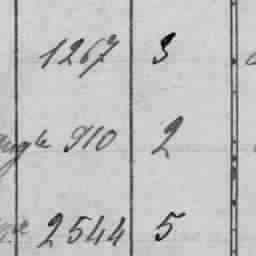 1267 3
910 2
2544 5